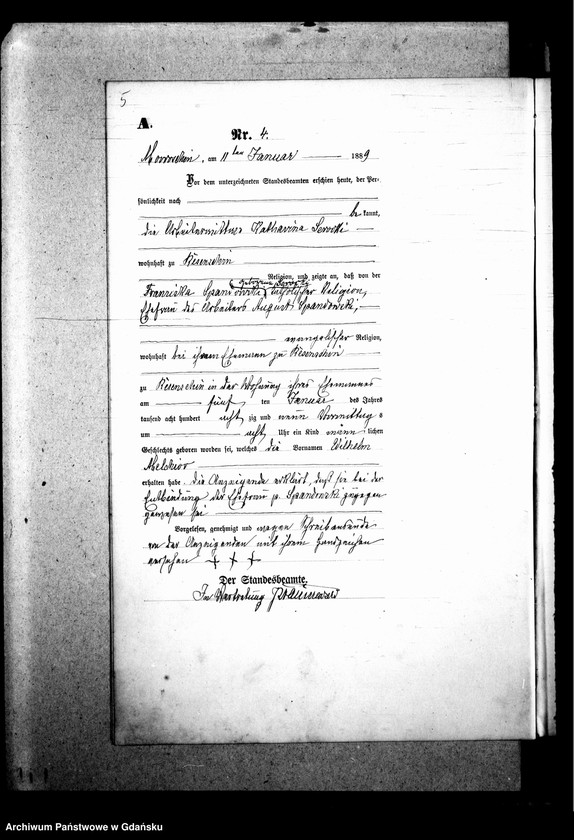 5
A.
Nr. 4.
am 11ten Januar 1889
Vor dem unterzeichneten Standesbeamten erschien heute, der Per-
sönlichkeit nach
be kannt,
die Katharina
wohnhaft zu
Religion, und zeigte an, daß von der
geborene
Franziska katholischer Religion,
Ehefrau des Arbeiters August Spandowski,
evangelischer Religion,
wohnhaft bei ihrem Ehemann zu
zu in der Wohnung ihres Ehemannes
am fünf ten Januar des Jahres
tausend acht hundert acht zig und neun Vormittag s
um acht Uhr ein Kind männ lichen
Geschlechts geboren worden sei, welches die Vornamen Wilhelm
Melchior
erhalten habe, die Anzeigende erklärt, daß sie bei der
Entbindung der Ehefrau p. Spandowski zugegen
gewesen sei
Vorgelesen, genehmigt und wegen Schreibensunkunde
von der Anzeigenden mit ihrem Handzeichen
versehen + + +
Der Standesbeamte.
In Vertretung
Archiwum Państwowe w Gdańsku